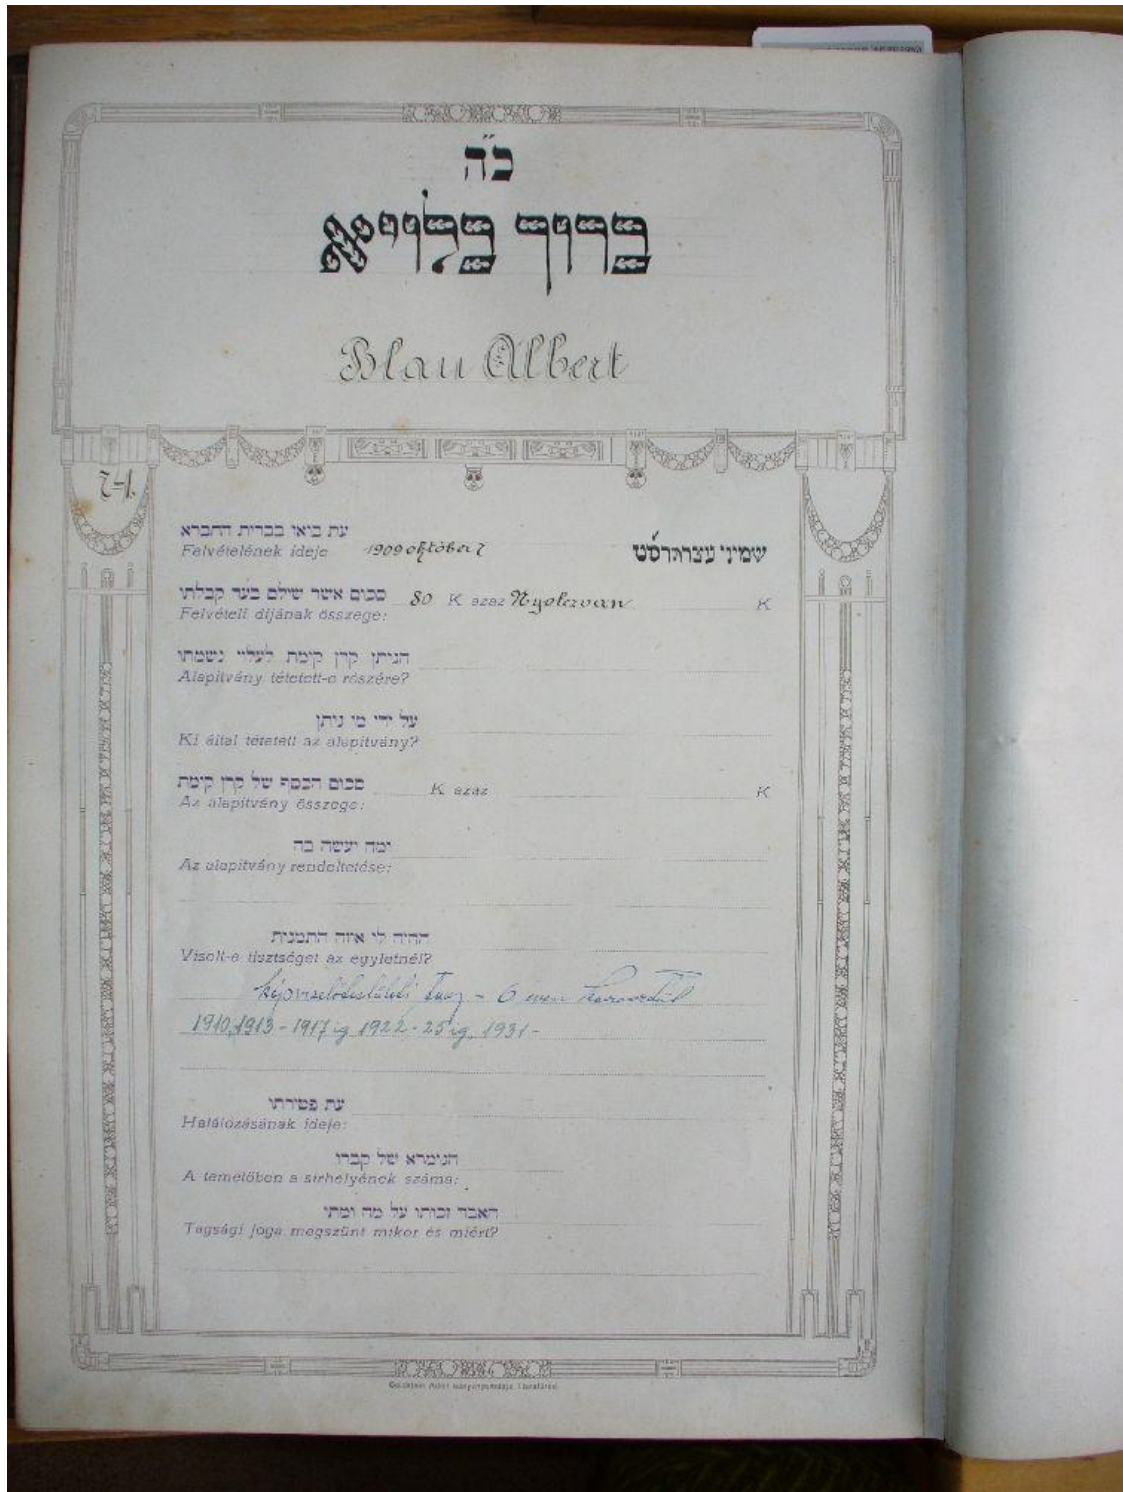 כ״ה
ברוך בלויא
Blau Albert
עת ביאו בברית החברא
Felvételének ideje 1909 október 7 שמיני עצרת
סכום אשר שילם בעד קבלתו
Felvételi díjának összege: 80 K azaz Nyolczvan K
הניתן קרן קימת לעלוי נשמתו
Alapitvány tétetett-e részére?
על ידי מי ניתן
Ki által tétetett az alapitvány?
סכום הכסף של קרן קימת
Az alapitvány összege: K azaz K
ומה יעשה בה
Az alapitvány rendeltetése:
ההיה לו איזה התמנות
Viselt-e tisztséget az egyletnél?
képviselőtestületi tag - 6 éven keresztül
1910, 1913 - 1917 ig 1922 - 25 ig, 1931 -
עת פטירתו
Halálozásának ideje:
הנימרא של קברו
A temetőben a sirhelyének száma:
האבד זכותו על מה ומתי
Tagsági joga megszünt mikor és miért?